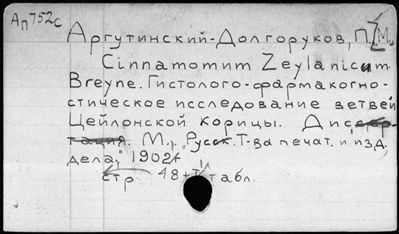 Ап752с
Аргутинский-Долгоруков, П.М.
Cinnamomum Zeylanicum
Breyne. Гистолого-фармакогно-
стическое исследование ветвей
Цейлонской корицы. Диссер-
тация. М., "Русск. Т-ва печат. и изд.
дела", 1902.
стр 48+1 табл.